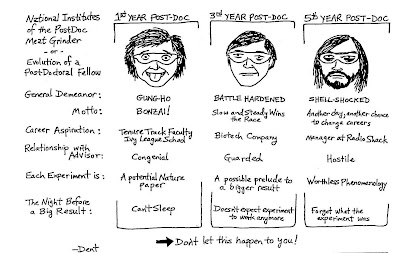 National Institutes of the PostDoc Meat Grinder
-or-
Evolution of a Post-Doctoral Fellow
1st YEAR POST-DOC
3rd YEAR POST-DOC
5th YEAR POST-DOC
General Demeanor:
GUNG-HO
BATTLE HARDENED
SHELL-SHOCKED
Motto:
BONZAI!
Slow and Steady Wins the Race
Another day, another chance to change careers
Career Aspiration:
Tenure Track Faculty Ivy League School
Biotech Company
Manager at Radio Shack
Relationship with Advisor:
Congenial
Guarded
Hostile
Each Experiment is:
A potential Nature Paper
A possible prelude to a bigger result
Worthless Phenomenology
The Night Before a Big Result:
Can't Sleep
Doesn't expect experiment to work anymore
Forgot what the experiment was
Don't let this happen to you!
-Dent